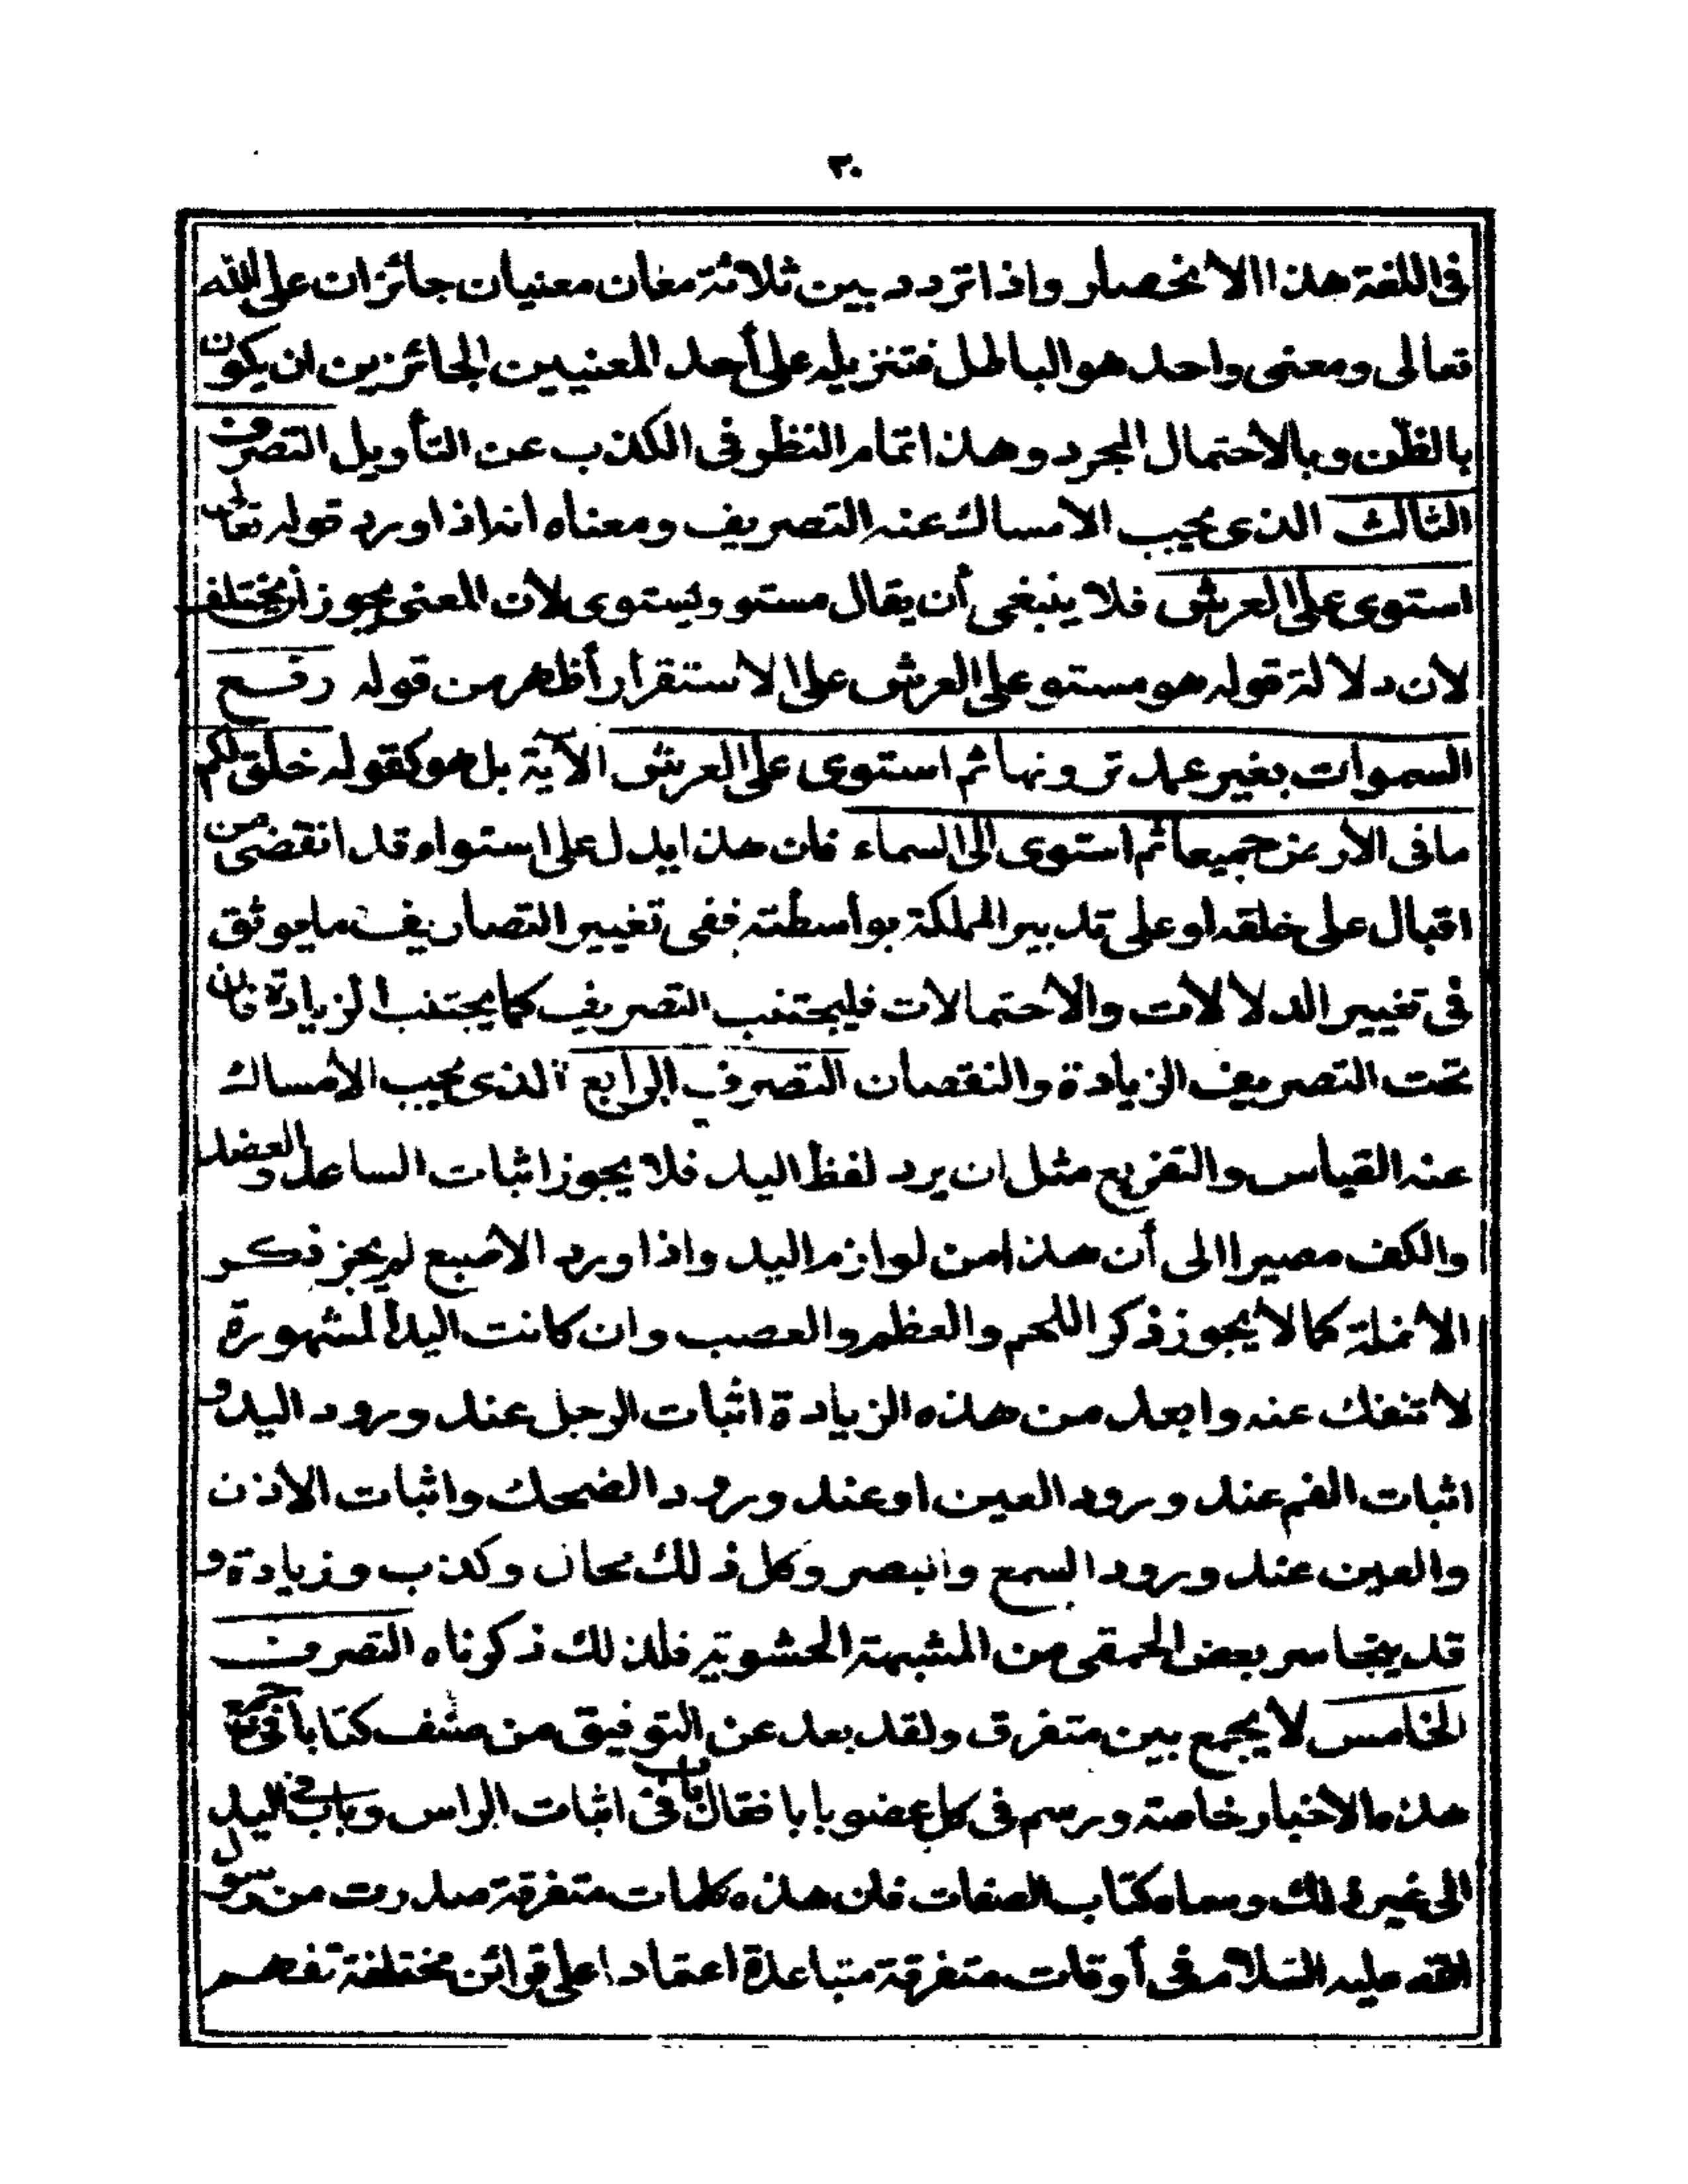 ٢٠
فى اللغة هذا الانحصار واذا تردد بين ثلاثة معان معنيان جائزان على الله
تعالى ومعنى واحد هو الباطل فتنزيله على أحد المعنيين الجائزين ان يكون
بالظن وبالاحتمال المجرد وهذا تمام النظر فى الكذب عن التأويل التصرف
الثالث الذى يجب الامساك عنه التصريف ومعناه انه اذا ورد قوله تعالى
استوى على العرش فلا ينبغى أن يقال مستو ويستوى لأن المعنى يجوز أن يختلف
لأن دلالة قوله هو مستو على العرش على الاستقرار أظهر من قوله رفع
السموات بغير عمد ترونها ثم استوى على العرش الآية بل هو كقوله خلق لكم
ما فى الأرض جميعا ثم استوى الى السماء فان هذا يدل على استواء قد انقضى من
اقبال على خلقه او على تدبير المملكة بواسطته ففى تغيير التصاريف ما يوثق
فى تغيير الدلالات والاحتمالات فليجتنب التصريف كما يجتنب الزيادة فان
تحت التصريف الزيادة والنقصان التصرف الرابع الذى يجب الأمساك
عنه القياس والتفريع مثل ان يرد لفظ اليد فلا يجوز اثبات الساعد والعضد
والكف مصيرا الى أن هذا من لوازم اليد واذا ورد الاصبع لم يجز ذكر
الانملة كما لا يجوز ذكر اللحم والعظم والعصب وان كانت اليد المشهورة
لا تنفك عنه وابعد من هذه الزيادة اثبات الرجل عند ورود اليد و
اثبات الفم عند ورود العين او عند ورود الضحك واثبات الاذن
والعين عند ورود السمع والبصر وكل ذلك محال وكذب وزيادة و
قد يتجاسر بعض الحمقى من المشبهة الحشوية فلذلك ذكرناه التصرف
الخامس لا يجمع بين متفرق ولقد بعد عن التوفيق من صنف كتابا فى جمع
هذه الاخبار خاصة ورسم فى كل عضو بابا فقال باب فى اثبات الراس وباب فى اليد
الى غير ذلك وسماه كتاب الصفات فان هذه كلمات متفرقة صدرت من رسول
الله عليه السلام فى أوقات متفرقة متباعدة اعتمادا على قرائن مختلفة تفهم